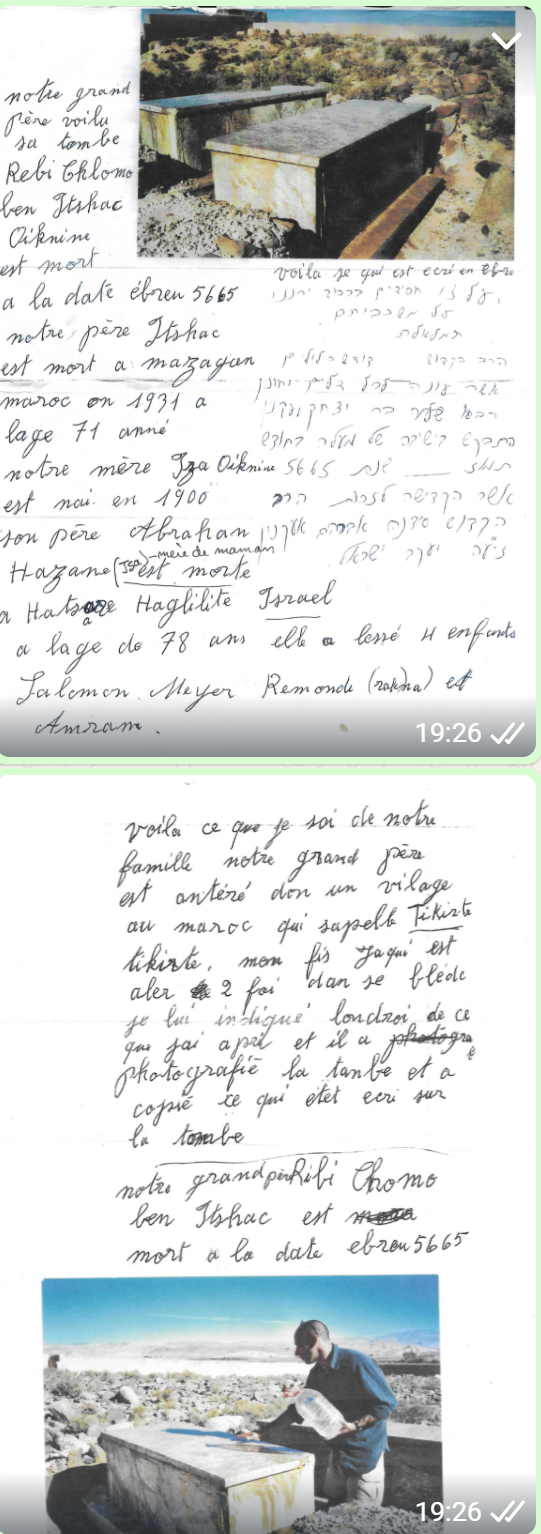 notre grand
père voila
sa tombe
Rebi Chlomo
ben Itshac
Oiknine
est mort
voila se qui est ecri en Ebre
a la date ébreu 5665
notre père Itshac
est mort a mazagan
maroc en 1931 a
lage 71 anné
notre mère Iza Oiknine
est nai en 1900
son père Abrahan
Hazane (Isa) - mère de maman
est morte
a Hatsore Haglilite Israel
a lage de 78 ans elle a lessé 4 enfants
Salomon Meyer Remonde (rahma) et
Amram.
על זו חסידים בכבוד ירננו
על משכבותם
הרב הקדוש
רבי שלמה בר יצחק
התבקש בישיבה של מעלה בחודש
תמוז שנת 5665
אשר הקדישה לזכות הרב
הקדוש אברהם
זיע״א יעקב ישראל
19:26
voila ce que je sai de notre
famille notre grand père
est antéré don un vilage
au maroc qui sapelle Tikirte
tikirte, mon fis Jaqui est
aler 2 foi dan se bléde
je lui indiqué londroi de ce
que jai apri et il a photogra
photografié la tanbe et a
copié ce qui étet ecri sur
la tombe
notre grand père Ribi Chomo
ben Itshac est
mort a la date ebreu 5665
19:26